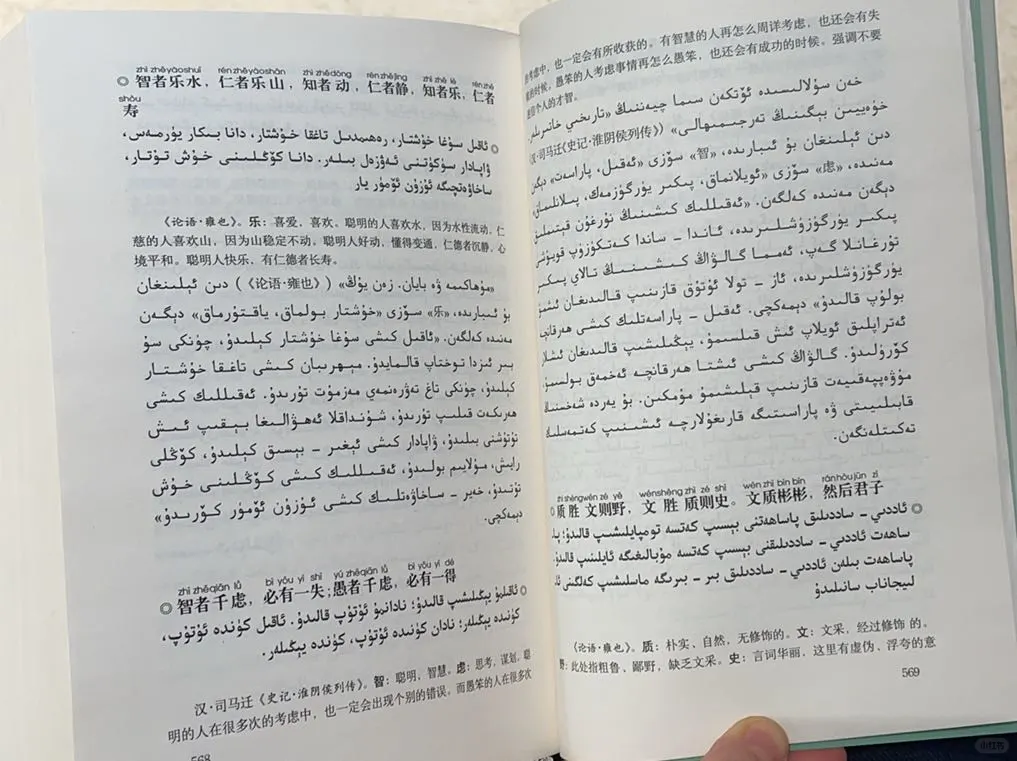 zhì zhě yào shuǐ rén zhě yào shān zhī zhě dòng rén zhě jìng zhī zhě lè rén zhě
◎智者乐水，仁者乐山，知者动，仁者静，知者乐，仁者
shòu
寿
◎ ئاقىل سۇغا خۇشتار، رەھىمدىل تاغقا خۇشتار، دانا بىكار يۈرمەس،
ۋاپادار سۈكۈتنى ئەۋزەل بىلەر. دانا كۆڭلىنى خۇش تۇتار،
ساخاۋەتچىگە ئۇزۇن ئۆمۈر يار
《论语·雍也》。乐：喜爱，喜欢。聪明的人喜欢水，因为水性流动，仁
慈的人喜欢山，因为山稳定不动。聪明人好动，懂得变通，仁德者沉静，心
境平和。聪明人快乐，有仁德者长寿。
«مۇھاكىمە ۋە بايان. زەن يۇڭ» (《论语·雍也》) دىن ئېلىنغان
بۇ ئىبارىدە، «乐» سۆزى «خۇشتار بولماق، ياقتۇرماق» دېگەن
مەنىدە كەلگەن. «ئاقىل كىشى سۇغا خۇشتار كېلىدۇ، چۈنكى سۇ
بىر ئىزدا توختاپ قالمايدۇ. مېھرىبان كىشى تاغقا خۇشتار
كېلىدۇ، چۈنكى تاغ تەۋرەنمەي مەزمۇت تۇرىدۇ. ئەقىللىك كىشى
ھەرىكەت قىلىپ تۇرىدۇ، شۇنداقلا ئەھۋالىغا بېقىپ ئىش
تۇتۇشنى بىلىدۇ، ۋاپادار كىشى ئېغىر - بېسىق كېلىدۇ، كۆڭلى
رايىش، مۇلايىم بولىدۇ، ئەقىللىك كىشى كۆڭلىنى خۇش
تۇتىدۇ، خەير - ساخاۋەتلىك كىشى ئۇزۇن ئۆمۈر كۆرىدۇ»
دېمەكچى.
zhì zhě qiān lǜ bì yǒu yì shī yú zhě qiān lǜ bì yǒu yì dé
◎智者千虑，必有一失；愚者千虑，必有一得
◎ ئاقىلمۇ يېڭىلىشىپ قالىدۇ؛ نادانمۇ ئۇتۇپ قالىدۇ. ئاقىل كۈندە ئۇتۇپ،
كۈندە يېڭىلەر؛ نادان كۈندە ئۇتۇپ، كۈندە يېڭىلەر.
汉·司马迁《史记·淮阴侯列传》。智：聪明，智慧。虑：思考，谋划，聪
明的人在很多次的考虑中，也一定会出现个别的错误，而愚笨的人在很多次
568
考虑中，也一定会有所收获的。有智慧的人再怎么周详考虑，也还会有失
的时候，愚笨的人考虑事情再怎么愚笨，也还会有成功的时候。强调不要
个人的才智。
خەن سۇلالىسىدە ئۆتكەن سىما چيەننىڭ «تارىخىي خاتىرىلەر.
خۇەييىن بېگىنىڭ تەرجىمىھالى» (汉·司马迁《史记·淮阴侯列传》)
دىن ئېلىنغان بۇ ئىبارىدە، «智» سۆزى «ئەقىل، پاراسەت» دېگەن
مەنىدە، «虑» سۆزى «ئويلانماق، پىكىر يۈرگۈزمەك، پىلانلىماق»
دېگەن مەنىدە كەلگەن. «ئەقىللىك كىشىنىڭ نۇرغۇن قېتىملىق
پىكىر يۈرگۈزۈشلىرىدە، ئاندا - ساندا كەتكۈزۈپ قويۇشى
تۇرغانلا گەپ، ئەمما گالۋاڭ كىشىنىڭ تالاي پىكىر
يۈرگۈزۈشلىرىدە، ئاز - تولا ئۇتۇق قازىنىپ قالىدىغان ئىشمۇ
بولۇپ قالىدۇ» دېمەكچى. ئەقىل - پاراسەتلىك كىشى ھەرقانچە
ئەتراپلىق ئويلاپ ئىش قىلسىمۇ، يېڭىلىشىپ قالىدىغان ئىشلار
كۆرۈلىدۇ. گالۋاڭ كىشى ئىشتا ھەرقانچە ئەخمەق بولسىمۇ،
مۇۋەپپەقىيەت قازىنىپ قېلىشىمۇ مۇمكىن. بۇ يەردە شەخسنىڭ
قابىلىيىتى ۋە پاراسىتىگە قارىغۇلارچە ئىشىنىپ كەتمەسلىك
تەكىتلەنگەن.
zhì shèng wén zé yě wén shèng zhì zé shǐ wén zhì bīn bīn rán hòu jūn zǐ
◎质胜文则野，文胜质则史。文质彬彬，然后君子
◎ ئاددىي - ساددىلىق پاساھەتنى بېسىپ كەتسە تومپايلىشىپ قالىدۇ؛ پا
ساھەت ئاددىي - ساددىلىقنى بېسىپ كەتسە مۇبالىغىگە ئايلىنىپ قالىدۇ.
پاساھەت بىلەن ئاددىي - ساددىلىق بىر - بىرىگە ماسلىشىپ كەلگىنى ئا
لىيجاناب سانىلىدۇ
《论语·雍也》。质：朴实、自然，无修饰的。文：文采，经过修饰的。
野：此处指粗鲁、鄙野，缺乏文采。史：言词华丽，这里有虚伪、浮夸的意
569
小红书